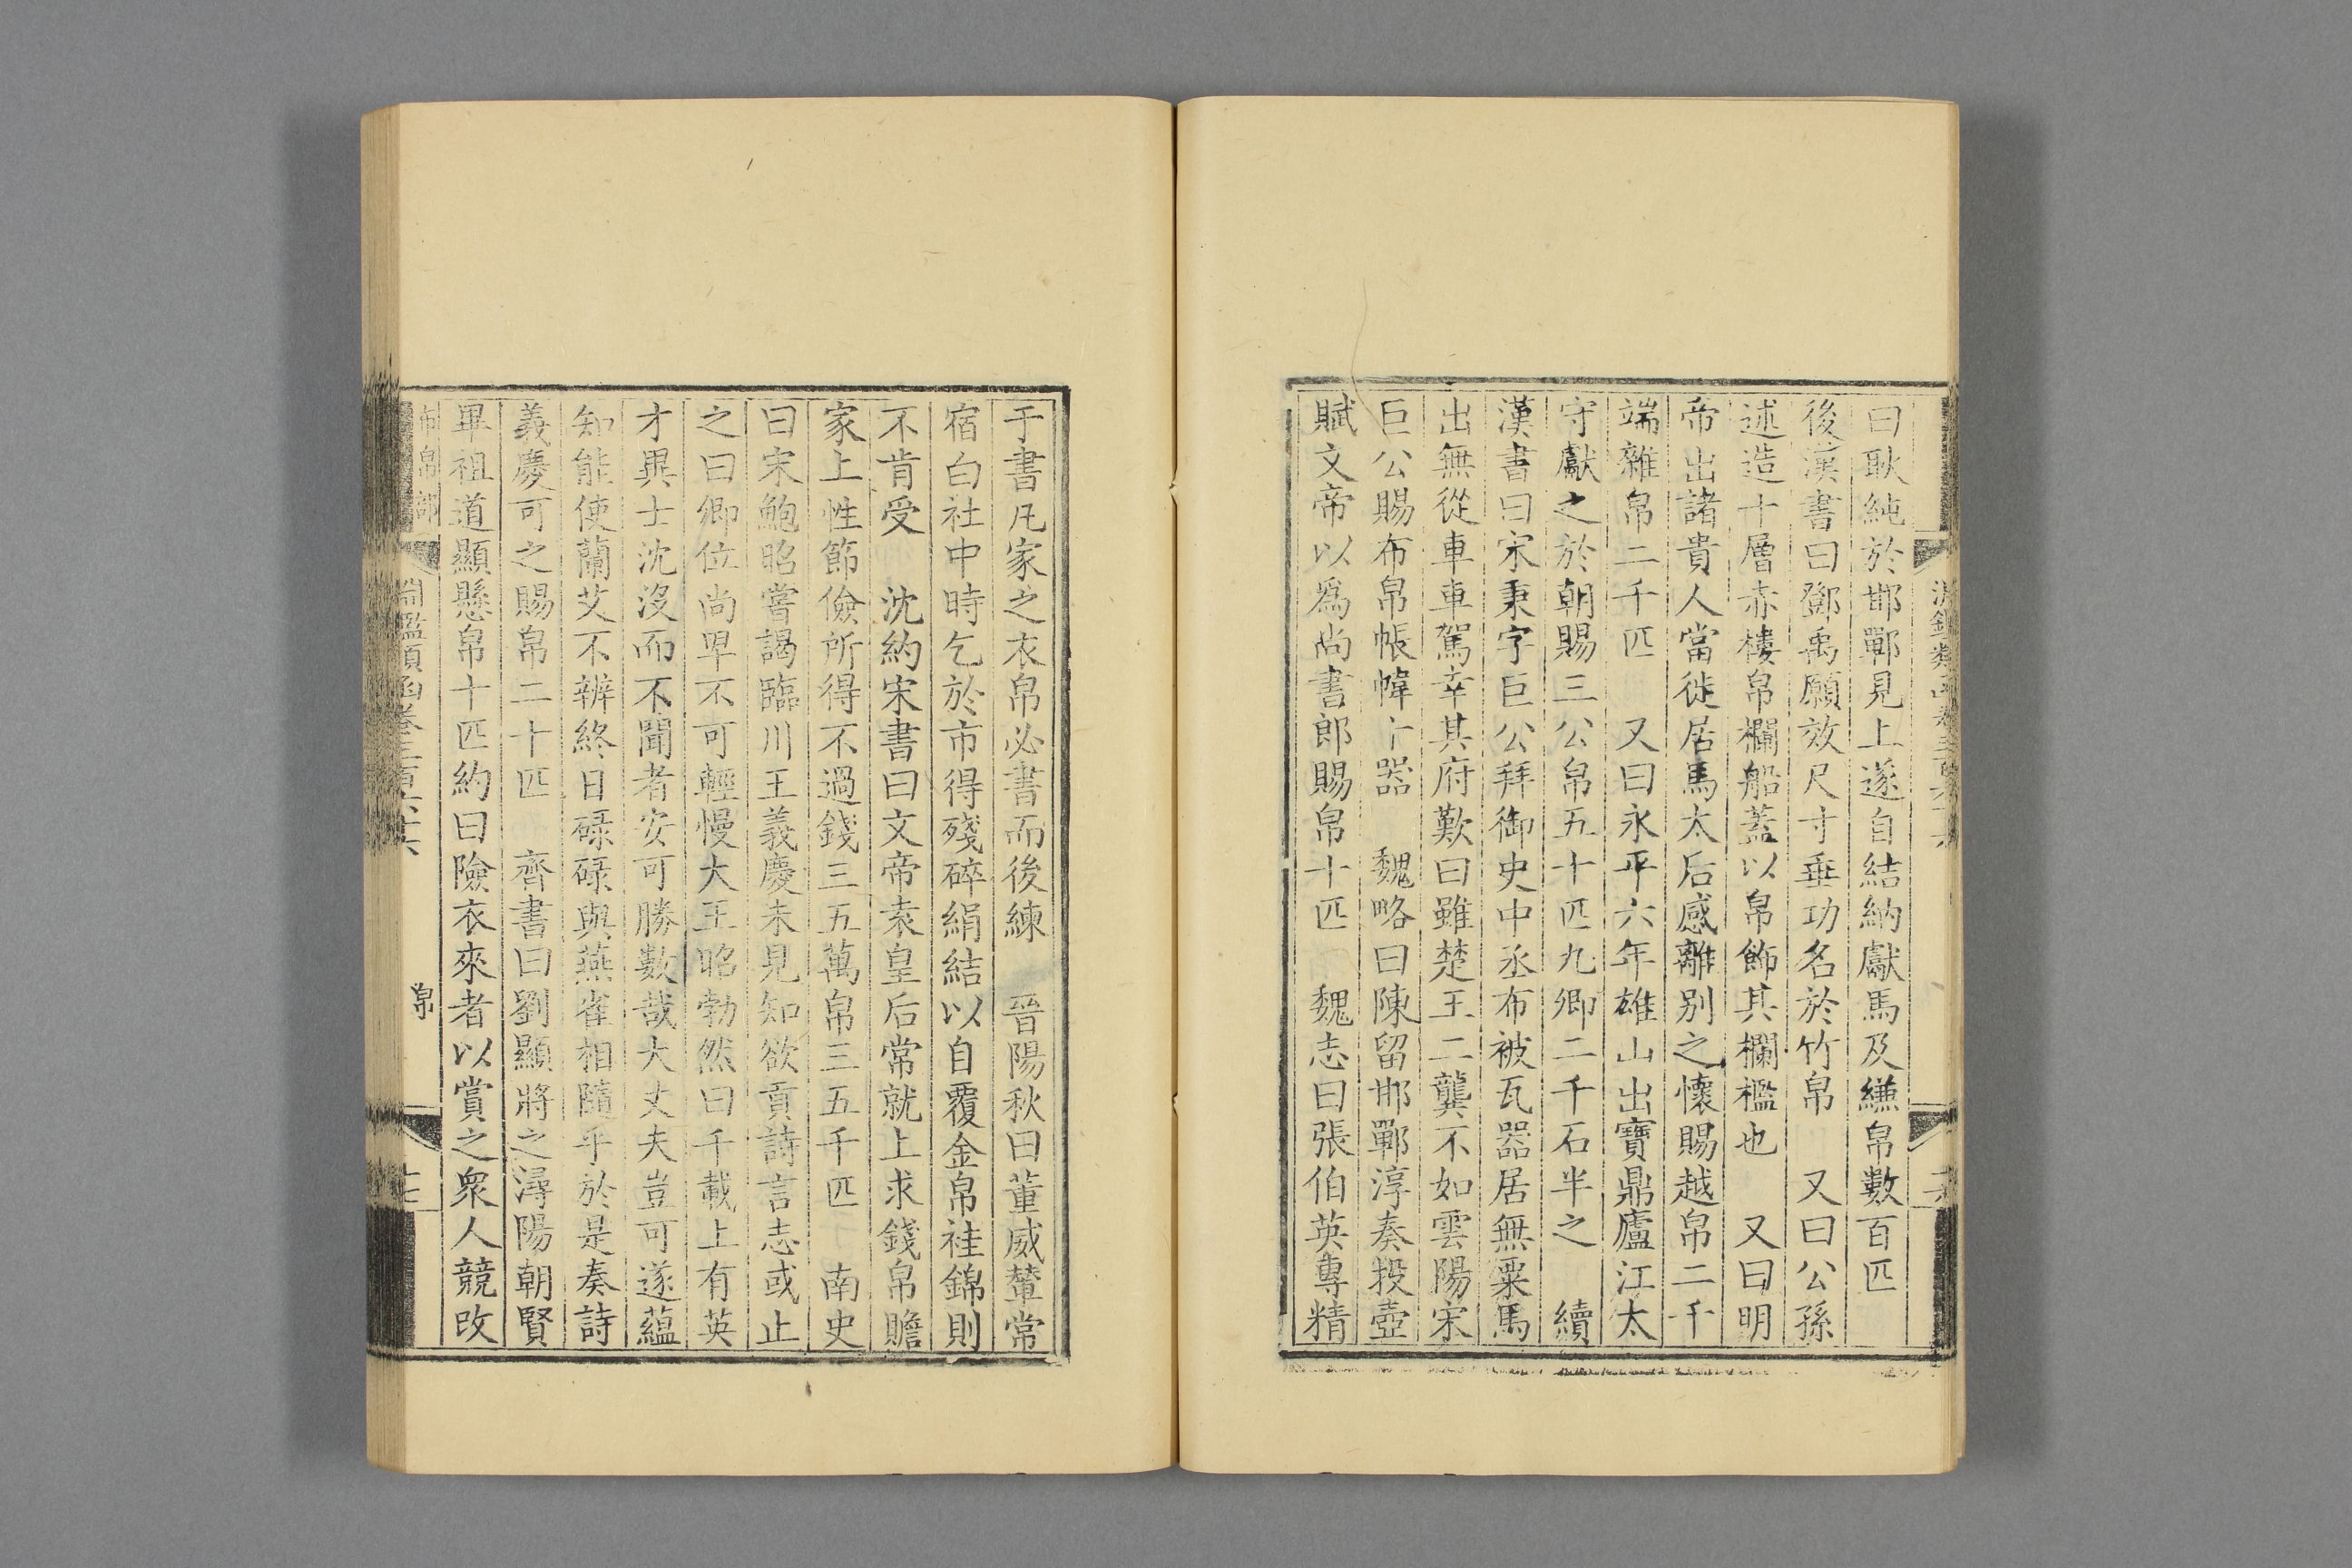 曰耿純於邯鄲見上遂自結納獻馬及縑帛數百匹
後漢書曰鄧禹願效尺寸垂功名於竹帛 又曰公孫
述造十層赤樓帛欄船蓋以帛飾其欄檻也 又曰明
帝出諸貴人當徙居馬太后感離別之懷賜越帛二千
端雜帛二千匹 又曰永平六年雄山出寶鼎廬江太
守獻之於朝賜三公帛五十匹九卿二千石半之 續
漢書曰宋秉字巨公拜御史中丞布被瓦器居無粟馬
出無從車車駕幸其府歎曰雖楚王二龔不如雲陽宋
巨公賜布帛帳幃 器 魏略曰陳留邯鄲淳奏投壺
賦文帝以爲尚書郎賜帛十匹 魏志曰張伯英專精
于書凡家之衣帛必書而後練 晉陽秋曰董威輦常
宿白社中時乞於市得殘碎絹結以自覆金帛袿錦則
不肯受 沈約宋書曰文帝袁皇后常就上求錢帛贍
家上性節儉所得不過錢三五萬帛三五千匹 南史
曰宋鮑昭嘗謁臨川王義慶未見知欲貢詩言志或止
之曰卿位尚卑不可輕慢大王昭勃然曰千載上有英
才異士沈沒而不聞者安可勝數哉大丈夫豈可遂蘊
知能使蘭艾不辨終日碌碌與燕雀相隨乎於是奏詩
義慶可之賜帛二十匹 齊書曰劉顯將之潯陽朝賢
畢祖道顯懸帛十匹約曰險衣來者以賞之衆人競改
布帛部 淵鑑類函卷三百六十六 帛 十七